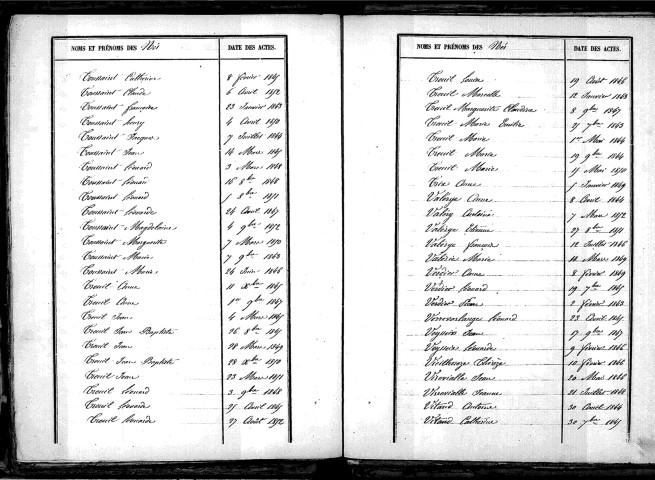 NOMS ET PRÉNOMS DES Nés DATE DES ACTES.
Toussaint Catherine 8 février 1865
Toussaint Claude 6 Avril 1872
Toussaint françoise 23 Janvier 1863
Toussaint henry 4 Avril 1870
Toussaint Jacques 7 Juillet 1864
Toussaint Jean 14 Mars 1865
Toussaint Léonard 3 Mars 1868
Toussaint Léonard 16 8bre 1868
Toussaint Léonard 5 8bre 1871
Toussaint Léonarde 24 Août 1867
Toussaint Magdelaine 4 9bre 1872
Toussaint Marguerite 7 Mars 1870
Toussaint Marie 7 9bre 1863
Toussaint Marie 24 Juin 1866
Treuil Anne 11 Xbre 1865
Treuil Anne 1er 9bre 1867
Treuil Jean 4 Mars 1865
Treuil Jean Baptiste 26 8bre 1865
Treuil Jean 28 Mars 1869
Treuil Jean Baptiste 28 Xbre 1870
Treuil Jean 23 Mars 1871
Treuil Léonard 3 9bre 1868
Treuil Léonarde 25 Avril 1865
Treuil Léonarde 27 Août 1872
NOMS ET PRÉNOMS DES Nés DATE DES ACTES.
Treuil Louise 19 Août 1866
Treuil Marcelle 12 Janvier 1863
Treuil Marguerite Claudine 8 9bre 1867
Treuil Marie Emilie 25 7bre 1863
Treuil Marie 1er Mai 1864
Treuil Marie 19 9bre 1864
Treuil Marie 15 Mars 1870
Trix Anne 5 Janvier 1869
Valérye Anne 8 Avril 1864
Valéry Antoine 7 Mars 1872
Valérye Etienne 27 8bre 1871
Valérye françois 12 Juillet 1866
Valérie Marie 10 Mars 1869
Verdier Anne 8 février 1869
Verdier Léonard 19 7bre 1865
Verdier Pierre 2 février 1863
Léonard 23 Avril 1865
Veyssière Jean 17 9bre 1867
Veyssière Léonarde 9 février 1866
10 février 1866
Jean 20 Mai 1866
Jeanne 21 Juillet 1868
Vitaud Antoine 30 Avril 1864
Vitaud Catherine 30 7bre 1865